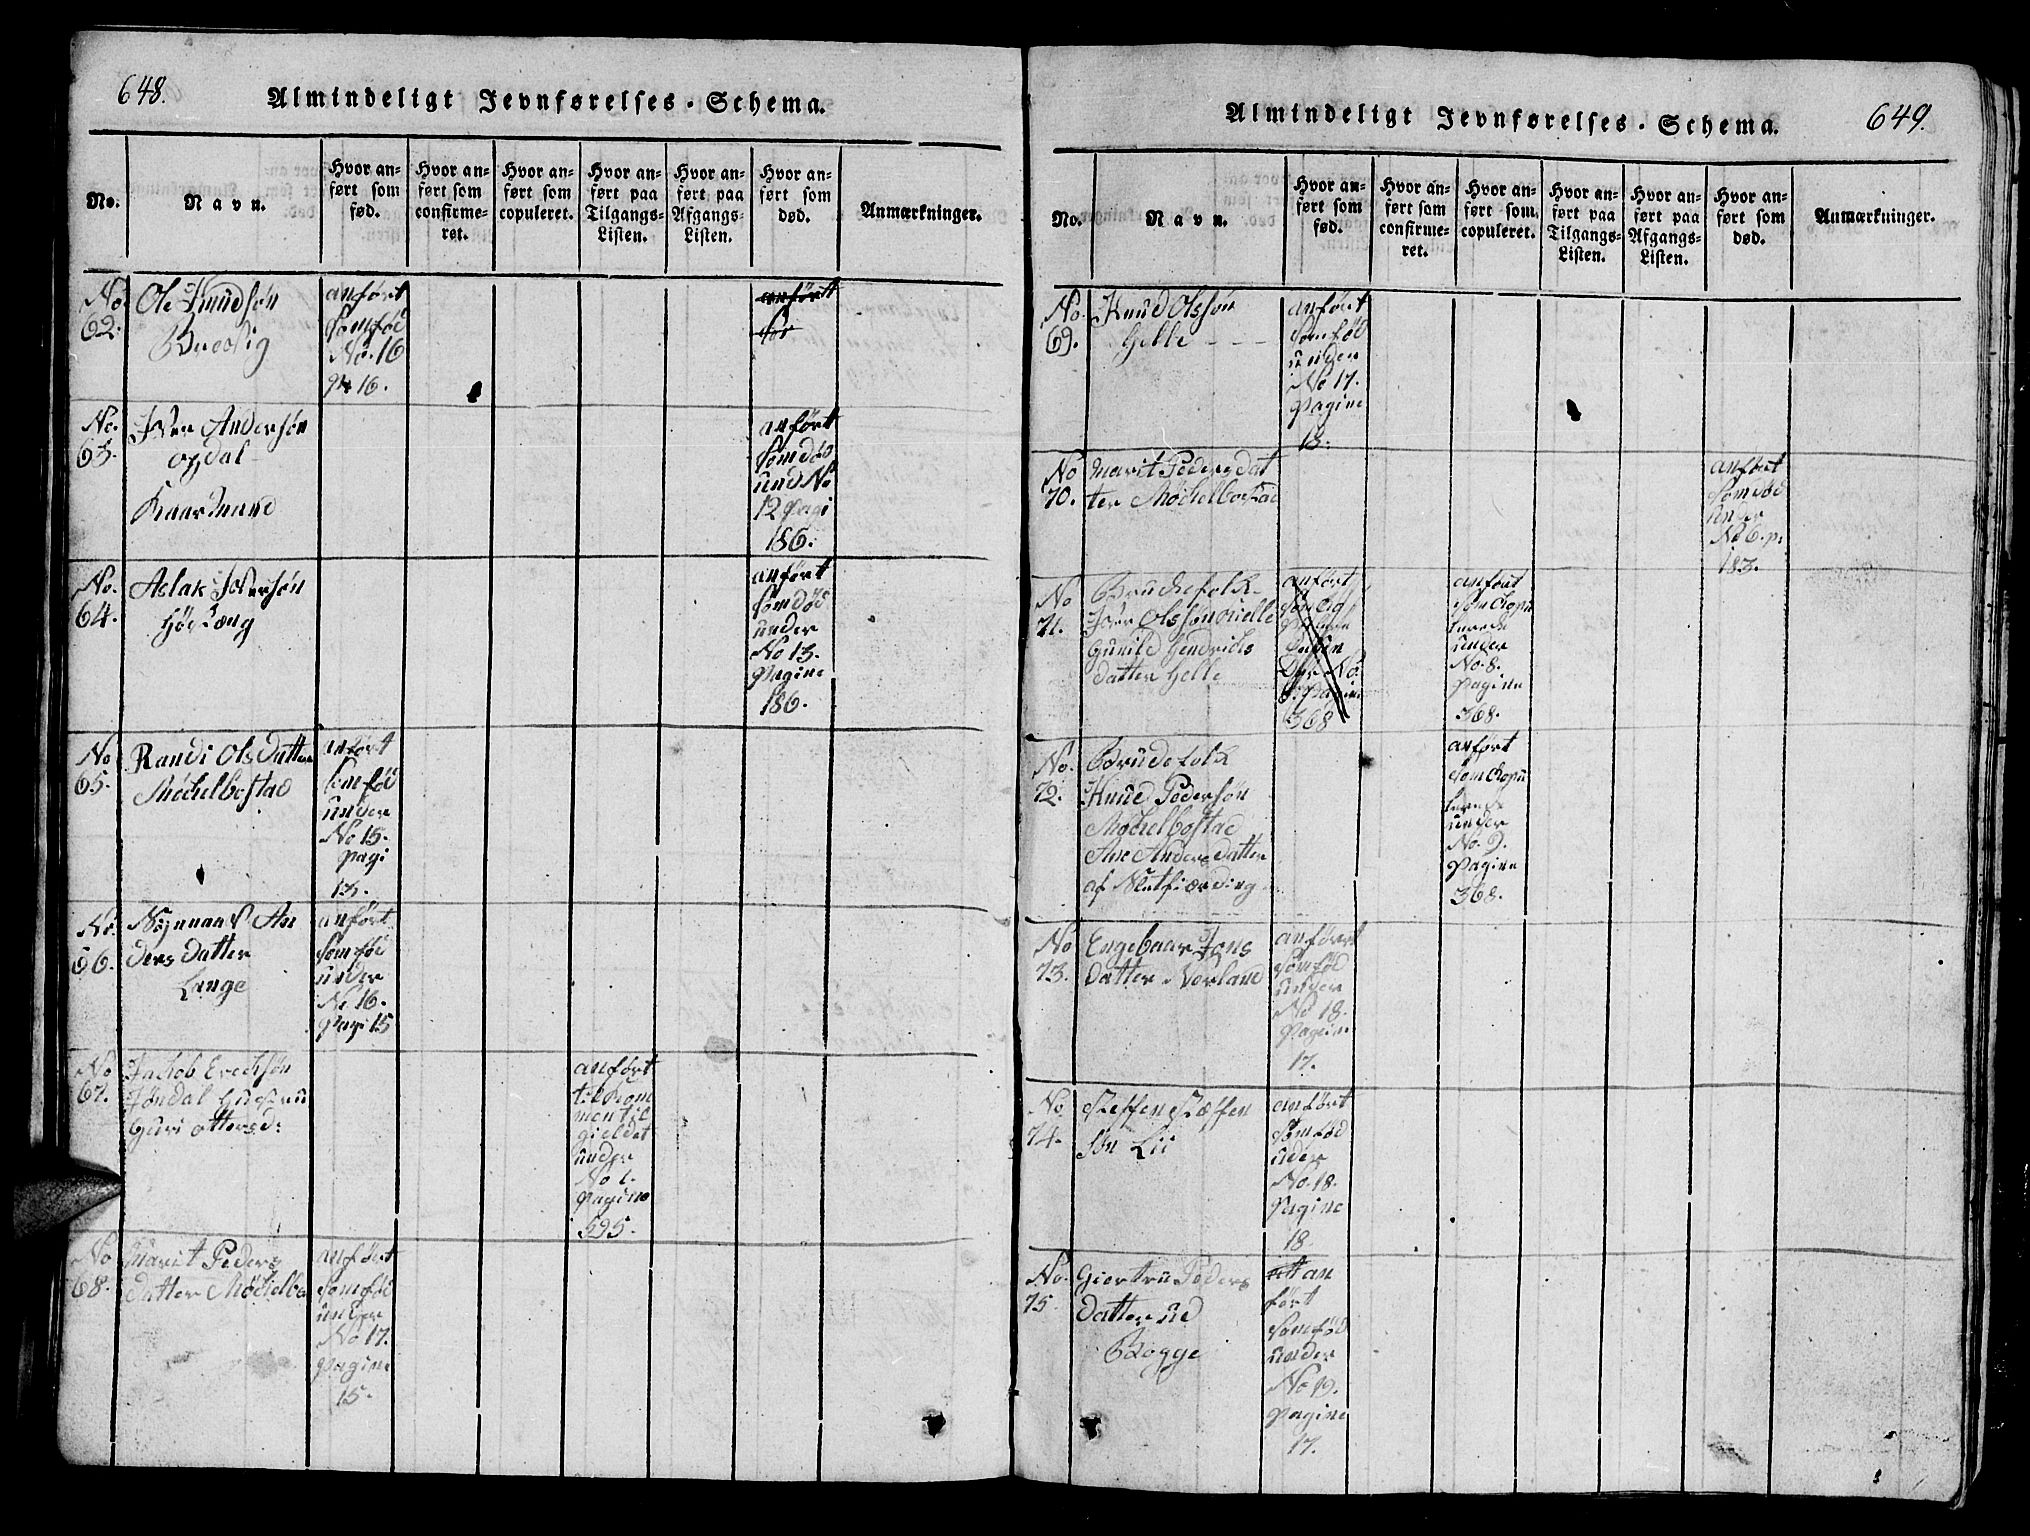 648.
Almindeligt Jevnførelses-Schema.
No.
Navn.
Hvor an-
ført som
fød.
Hvor an-
ført som
confirme-
ret.
Hvor an-
ført som
copuleret.
Hvor an-
ført paa
Tilgangs-
Listen.
Hvor an-
ført paa
Afgangs-
Listen.
Hvor an-
ført som
død.
Anmærkninger.
No
62.
Ole Knudsøn
anført
som fød
No. 16
16.
anført
for
No.
63.
Iver Andersøn
opdal
anført
som død
und No
12 Pagi
186.
No.
64.
Aslak Iversøn
anført
som død
under
No 13.
Pagine
186.
No
65.
Randi Olsdatter
Möchelbostad
anført
som fød
under
No 15.
Pagi
13.
No.
66.
An
ders datter
Lange
anført
som fød
under
No 16.
Pagi 15
No
67.
Jachob Erechsøn
Jøndal Hustru
Guri Ottersd:
anført
til kom
men til
gieldet
under
No 1.
Pagine
595.
No
68.
Marit Peders
datter Möchelbo
anført
som fød
under
No 17.
Pagine
15.
649.
Almindeligt Jevnførelses-Schema.
No.
Navn.
Hvor an-
ført som
fød.
Hvor an-
ført som
confirme-
ret.
Hvor an-
ført som
copuleret.
Hvor an-
ført paa
Tilgangs-
Listen.
Hvor an-
ført paa
Afgangs-
Listen.
Hvor an-
ført som
død.
Anmærkninger.
No.
69.
Knud Olssøn
Helle - - -
anført
som fød
under
No 17.
Pagine
13.
No
70.
Marit Peders dat
ter Möchelbostad
anført
som død
under
No 6. p.
183.
No
71.
Brudefolk
Iver Olssøn
Gunild Hendrichs
datter Helle
anført
No.
Pagine
368
anført
som Copu
lerede
under
No. 8.
Pagine
368.
No.
72.
Brudefolk
Knud Pedersøn
Möchelbostad
Ane Anders datter
af
anført
som Copu
lerede
under
No. 9.
Pagine
368.
No
73.
Engebaar Jons
datter Nørland
anført
som fød
under
No 18.
Pagine
17.
No.
74.
Steffen Stæffen
søn Lii
anført
som fød
under
No. 18.
Pagine
18
No.
75.
Giertru Peders
datter ud
Bogge
an
ført
som fød
under
No 19.
Pagine
17.